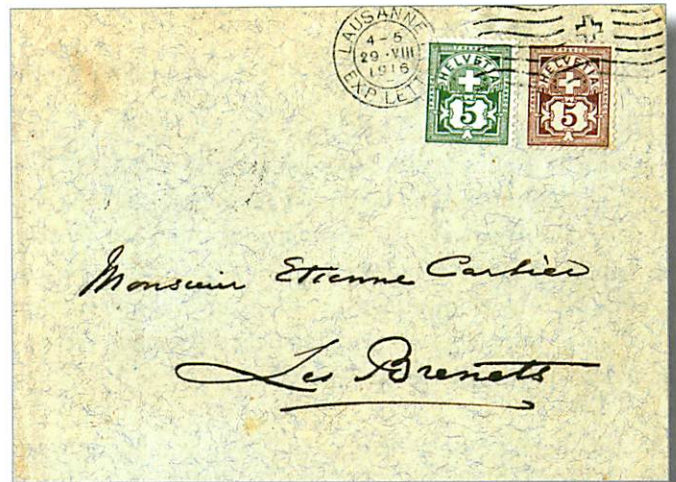 LAUSANNE
4-5
29·VIII
1916
EXP. LETT.
FRANCO
HELVETIA
5
FRANCO
HELVETIA
5
Monsieur Etienne Cartier
Les Brenets